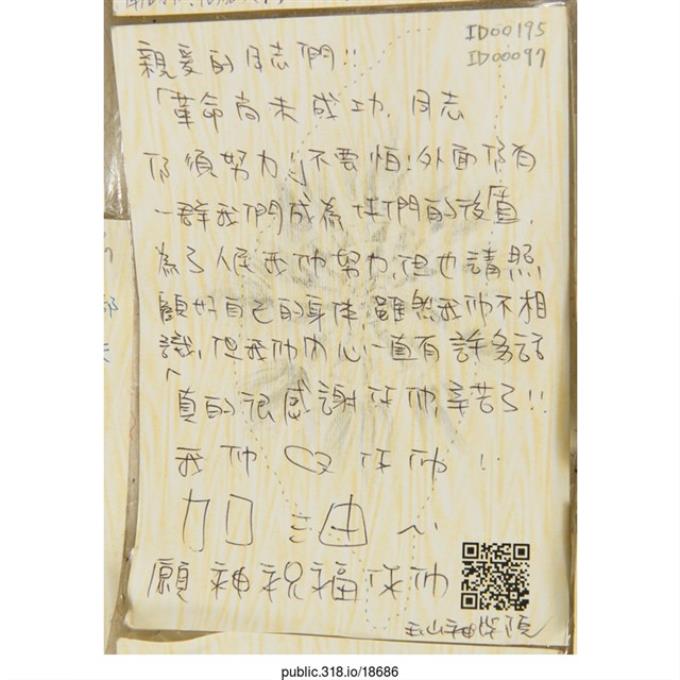 ID00195
ID00097
親愛的同志們!!
「革命尚未成功,同志
仍須努力」不要怕!外面仍有
一群我們成為你們的後盾,
為了人民我们努力,但也請照
顧好自己的身体,雖然我们不相
識,但我们內心一直有許多話
真的很感謝你们,辛苦了!!
我们♡你们!!
加油~
願神祝福你们
玉山神學院
public.318.io/18686